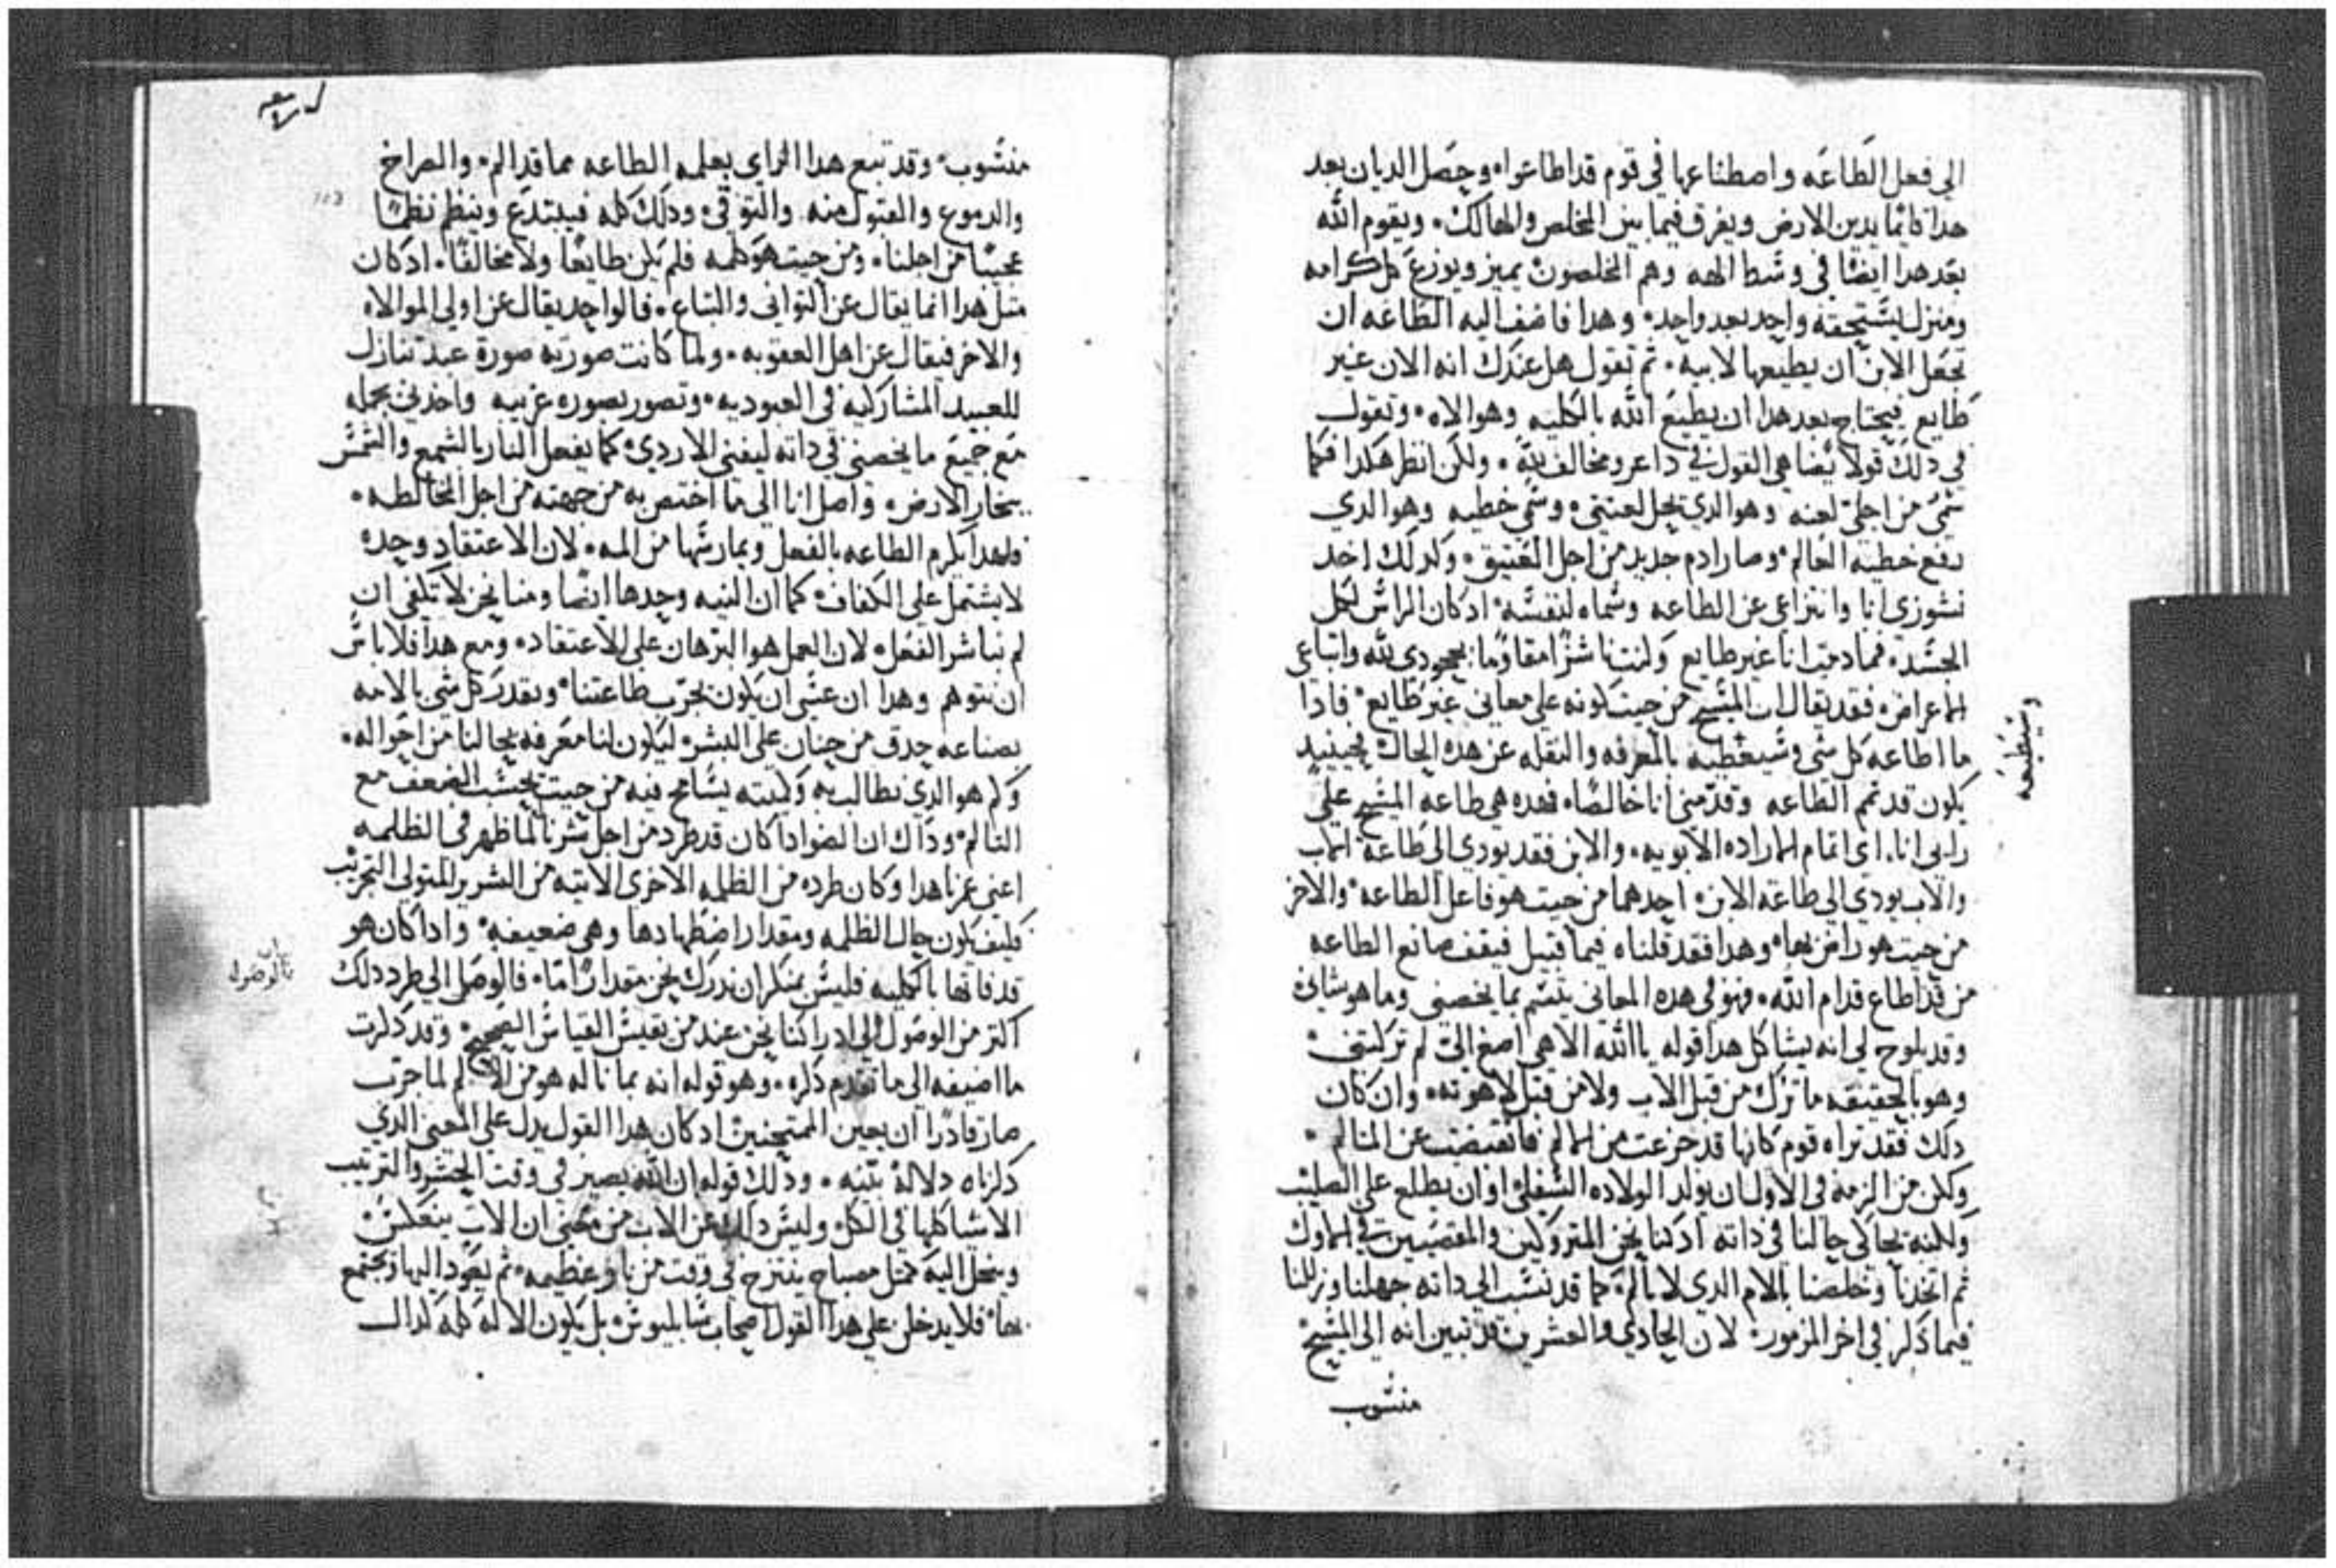 الي فعل الطاعه واصطناعها في قوم قد اطاعوا وحصل الديان بعد
هدا كايما يدين الارض ويفرق فيما بين المخلص والهالك. ويقوم الله
بعد هدا ايضا في وسط الهه وهم المخلصون يميز ويوزع كل كرامه
ومنزل يستحقه واحد بعد واحد. وهدا فاضف اليه الطاعه ان
تجعل الابن ان يطيعها لابيه. ثم تقول هل عندك انه الان غير
طايع فيحتاج بعد هدا ان يطيع الله بالكليه وهو الاه. وتقول
في دلك قولا يضاهي القول في داعر ومخالف لله. ولكن انظر هكدا فكما
سمي من اجلي لعنه وهو الدي تحل لعنتي. وسمي خطيه وهو الدي
رفع خطيه العالم. وصار ادم جديد من اجل العتيق. وكدلك اخد
نشوزي انا وانتزاعي عن الطاعه وسماه لنفسه ادكان الراس لكل
الجسد. فما دمت انا غير طايع وكنت ناشزا مقاوما بجحودي لله واتباعي
الاعراض. فقد يقال ان المسيح من حيت كونه علي معاني غير طايع. فادا
ما اطاعه كل شي وسيعطيه بالمعرفه والنقله عن هده الحال فحينيد
يكون قد تمم الطاعه وقدمني انا خالصا. فهده هي طاعه المسيح علي
رايي انا. اي اتمام الاراده الابويه. والابن فقد يودي الي طاعه الاب
والاب يودي الي طاعه الابن. احدهما من حيت هو فاعل الطاعه. والاخر
من حيت هو راض بها. وهدا فقد قلناه فيما قبل فيقف صانع الطاعه
من قد اطاع قدام الله. فهو في هده المعاني يتسم بما يخصني وما هو شاني
وقد يلوح لي انه يشاكل هدا قوله يا الله الاهي اصغ الي لم تركتني.
وهو بالحقيقه ما ترك من قبل الاب ولا من قبل لاهوته. وان كان
دلك فقد تراه قوم كانها قد جزعت من الالم فانقبضت عن المتالم.
ولكن من الزمه في الاول ان يولد الولاده السفلي او ان يطلع علي الصليب
ولكنه يحاكي حالنا في داته ادكنا نحن المتروكين والمقصيين في الاول
ثم اتخدنا وخلصنا بالام الدي لا يالم. كما قد نسب الي داته جهلنا وزللنا
فيما دكر في اخر المزمور. لان الحادي والعشرين قد تبين انه الي المسيح
منسوب
وسيعطيه
منسوب. وقد تبع هدا الراي بعلمه الطاعه مما قد الم. والصراخ
والدموع والقبول منه والتوقي. ودلك كله فيبتدع وينظم نظما
عجيبا من اجلنا. ومن حيت هو كلمه فلم يكن طايعا ولا مخالفا. ادكان
متل هدا انما يقال عن التواني والتباع. فالواحد يقال عن اولي الموالاه
والاخر فيقال عن اهل العقوبه. ولما كانت صورته صورة عبد تنازل
للعبيد المشاركيه في العبوديه. وتصور بصوره غريبه واخدني بجمله
مع جميع ما يخصني في داته ليفني الاردي. كما يفعل النار بالشمع والشمس
ببخار الارض. واصل انا الي ما اختص به من جهته من اجل المخالطه.
فلهدا يكرم الطاعه بالفعل ويمارسها من المه. لان الاعتقاد وحده
لا يشتمل علي الكفاف. كما ان النيه وحدها ايضا ومنا نحن لا تكفي ان
لم نباشر الفعل. لان العمل هو البرهان علي الاعتقاد. ومع هدا فلا باس
ان نتوهم وهدا ان عسي ان يكون يجرب طاعتنا. ويقدر كل شي بالامه
بصناعه حدق من حنان علي البشر. ليكون لنا معرفه بحالنا من احواله.
وكم هو الدي نطالب به وكميته يسامح فيه من حيت يحسب الضعف مع
التالم. وداك ان الضو ادا كان قد طرد من اجل سترنا لما ظهر في الظلمه
اعني عمرنا هدا وكان طرده من الظلمه الاخري الاتيه من الشرير المتولي التجريب
فكيف يكون حال الظلمه ومقدار اضطهادها وهي ضعيفه. وادا كان هو
قد فاتها بالكليه فليس بمنكر ان ندرك نحن مقدارا ما. فالوصل الي طرد دلك
اكتر من الوصول الي ادراكنا نحن عند من يقيس القياس الصحيح. وقد دكرت
ما اضيفه الي ما تقدم دكره. وهو قوله انه بما ناله هو من الالم لما جرب
صار قادرا ان يعين الممتحنين ادكان هدا القول يدل علي المعني الدي
دكرناه دلاله بينه. ودلك قوله ان الله يصير في وقت الجبر والترتيب
الاشيا كلها في الكل وليس دلك عن الاب من معني ان الابن ينعكس
وينحل اليه متل مصباح ينتزح في وقت من نار عظيمه. ثم يعود اليها ويجتمع
بها. فلا يدخلن علي هدا القول اصحاب سابليوس. بل يكون الاله كله كدلك
بان
بالوصول